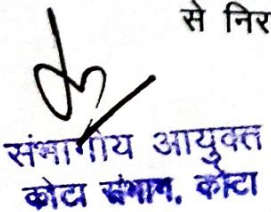 से निर
संभागीय आयुक्त
कोटा संभाग, कोटा